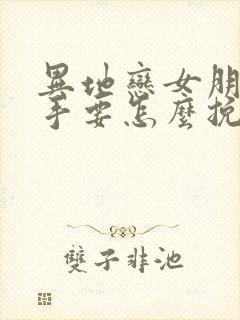 異地戀女朋
手要怎麼挽
雙子非池